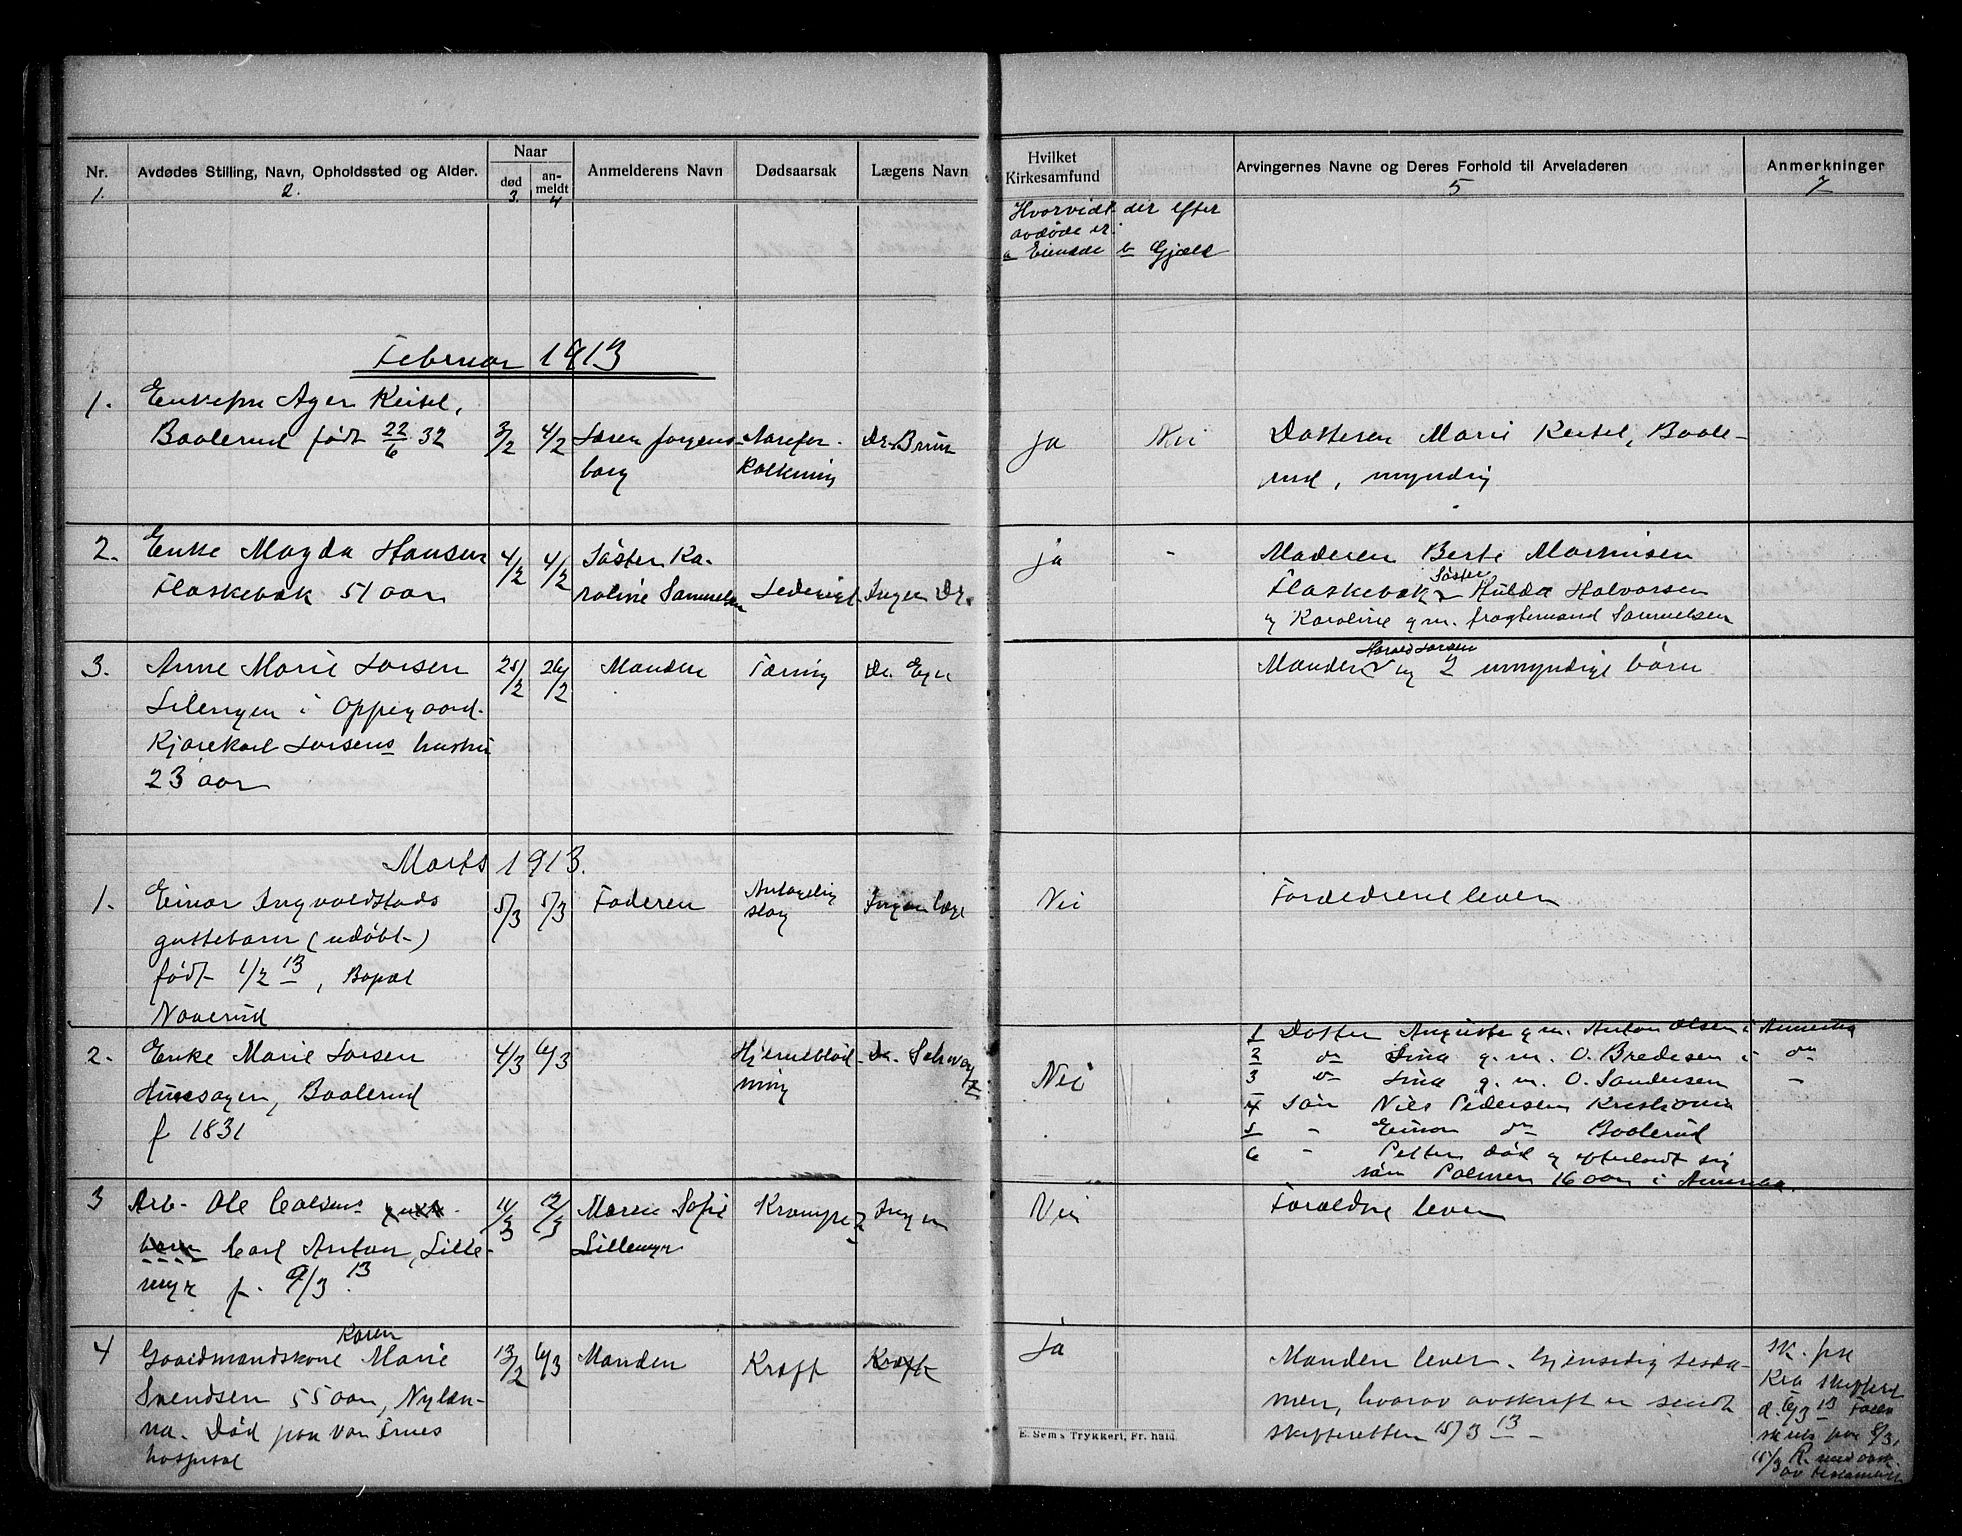 Nr. Avdødes Stilling, Navn, Opholdssted og Alder. Naar Anmelderens Navn Dødsaarsak Lægens Navn Hvilket Kirkesamfund Arvingernes Navne og Deres Forhold til Arveladeren Anmerkninger
død anmeldt
1. 2. 3. 4 5 7
Hvorvidt der efter
avdøde er:
a Eiendde b Gjæld
Februar 1913
1. Enkefru Ager Keisel,
Baalerud født 22/6 32 3/2 4/2 Søren Jørgens-
borg
Aarefor-
kalkning
Dr. Bruun
ja Nei
Datteren Marie Keisel, Baale-
rud, myndig
2. Enke Magda Hansen
Flaskebæk 51 aar
4/2 4/2 Søster Ka-
roline Samuelsen
Ingen Dr.
ja -
Moderen Berte
Flaskebæk Søster Hulda Halvorsen
og Karoline g. m. fragtemand Samuelsen
3. Anne Marie Larsen
i Oppegaard.
Kjørekarl Larsens hustru
23 aar
25/2 26/2 Manden Tæring Dr.
Manden Harald Larsen og 2 umyndige børn
Marts 1913.
1. Einar Ingvoldstads
guttebarn (udøbt)
født 1/2 13, Bopæl
Naaerud
5/3 5/3 Faderen
Antagelig
slag
Ingen læge
Nei
Forældrene lever
2. Enke Marie Larsen
Baalerud
f 1831
4/3 6/3
Hjerneblød-
ning
Dr. Schwartz
Nei
1 Datter Auguste g. m. Anton Olsen i Amerika
2 do Lina g. m. O. Bredesen i do
3 do Lina g. m. O. Sandersen -
4 Søn Nils Pedersen Kristiania
5 - Einar do Baalerud
6 - Petter død og efterladt sig
søn Palmer 16 aar i Amerika.
3 Arb. Ole Carlsens gutte-
barn Carl Anton, Lille-
myr f. 9/3 13.
11/3 12/3 Maren Sofie
Lillemyr
Krampe Ingen
Nei
Forældre lever
4 Gaardmandskone Karen Marie
Svendsen 55 aar, Nylæn-
na. Død paa Vor Frues
hospital
13/2 6/3 Manden Kræft Kræft
Ja
Manden lever. Gjensidig testa-
men, hvorav avskrift er sendt
skifteretten 15/3 13 -
Sk. fra
Kra skifteret
d. 6/3 13
av testament
E. Sem's Trykkeri, Fr.hald.